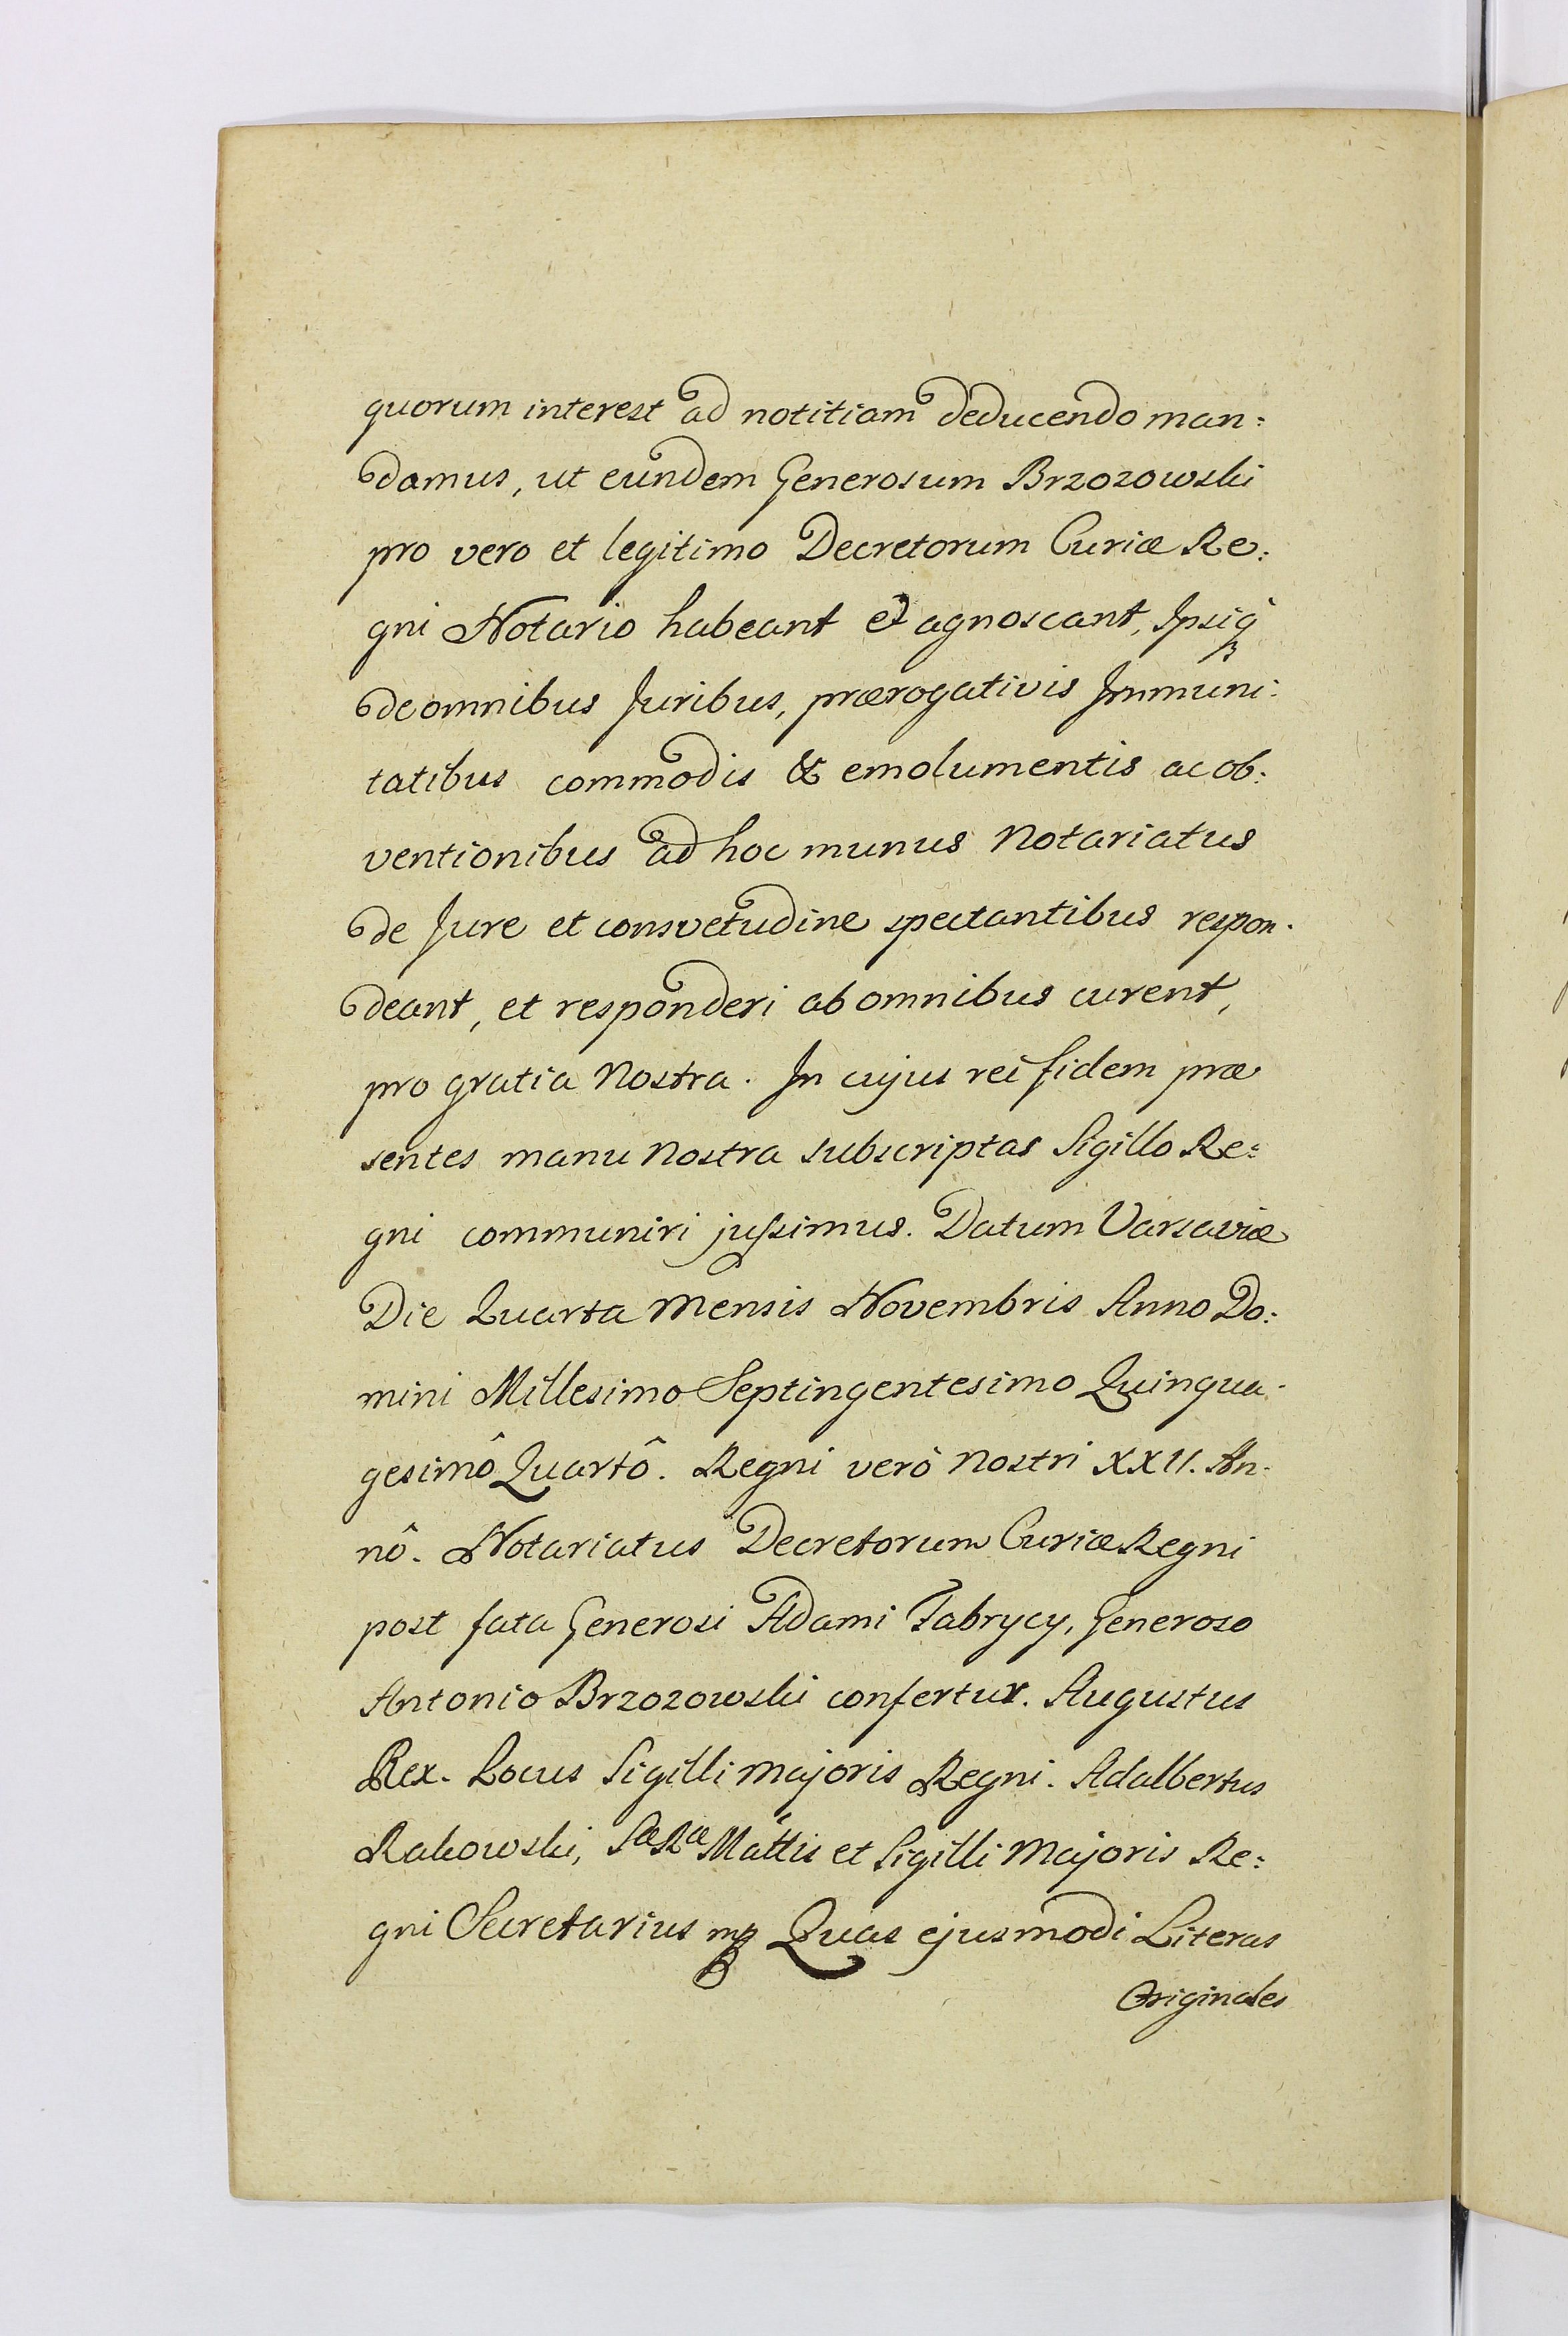 quorum interest ad notitiam deducendo man:
damus, ut eundem Generosum Brzozowski
pro vero et legitimo Decretorum Curiæ Re:
gni Notario habeant et agnoscant, Ipsiq̀
de omnibus Juribus, prærogativis Immuni:
tatibus commodis & emolumentis ac ob:
ventionibus ad hoc munus Notariatus
de Jure et consvetudine spectantibus respon.
deant, et responderi ab omnibus curent,
pro gratia Nostra. In cujus rei fidem præ
sentes manu Nostra subscriptas Sigillo Re:
gni communiri jussimus. Datum Varsaviæ
Die Quarta Mensis Novembris Anno Do:
mini Millesimo Septingentesimo Quinqua.
gesimô Quartô. Regni verò Nostri XXII. An.
nô. Notariatus Decretorum Curiæ Regni
post fata Generosi Adami Fabrycy, Generoso
Antonio Brzozowski confertur. Augustus
Rex. Locus Sigilli Majoris Regni. Adalbertus
Rakowski, Sæ Ræ Mattis et Sigilli Majoris Re:
gni Secretarius mp Quas ejusmodi Literas
Originales